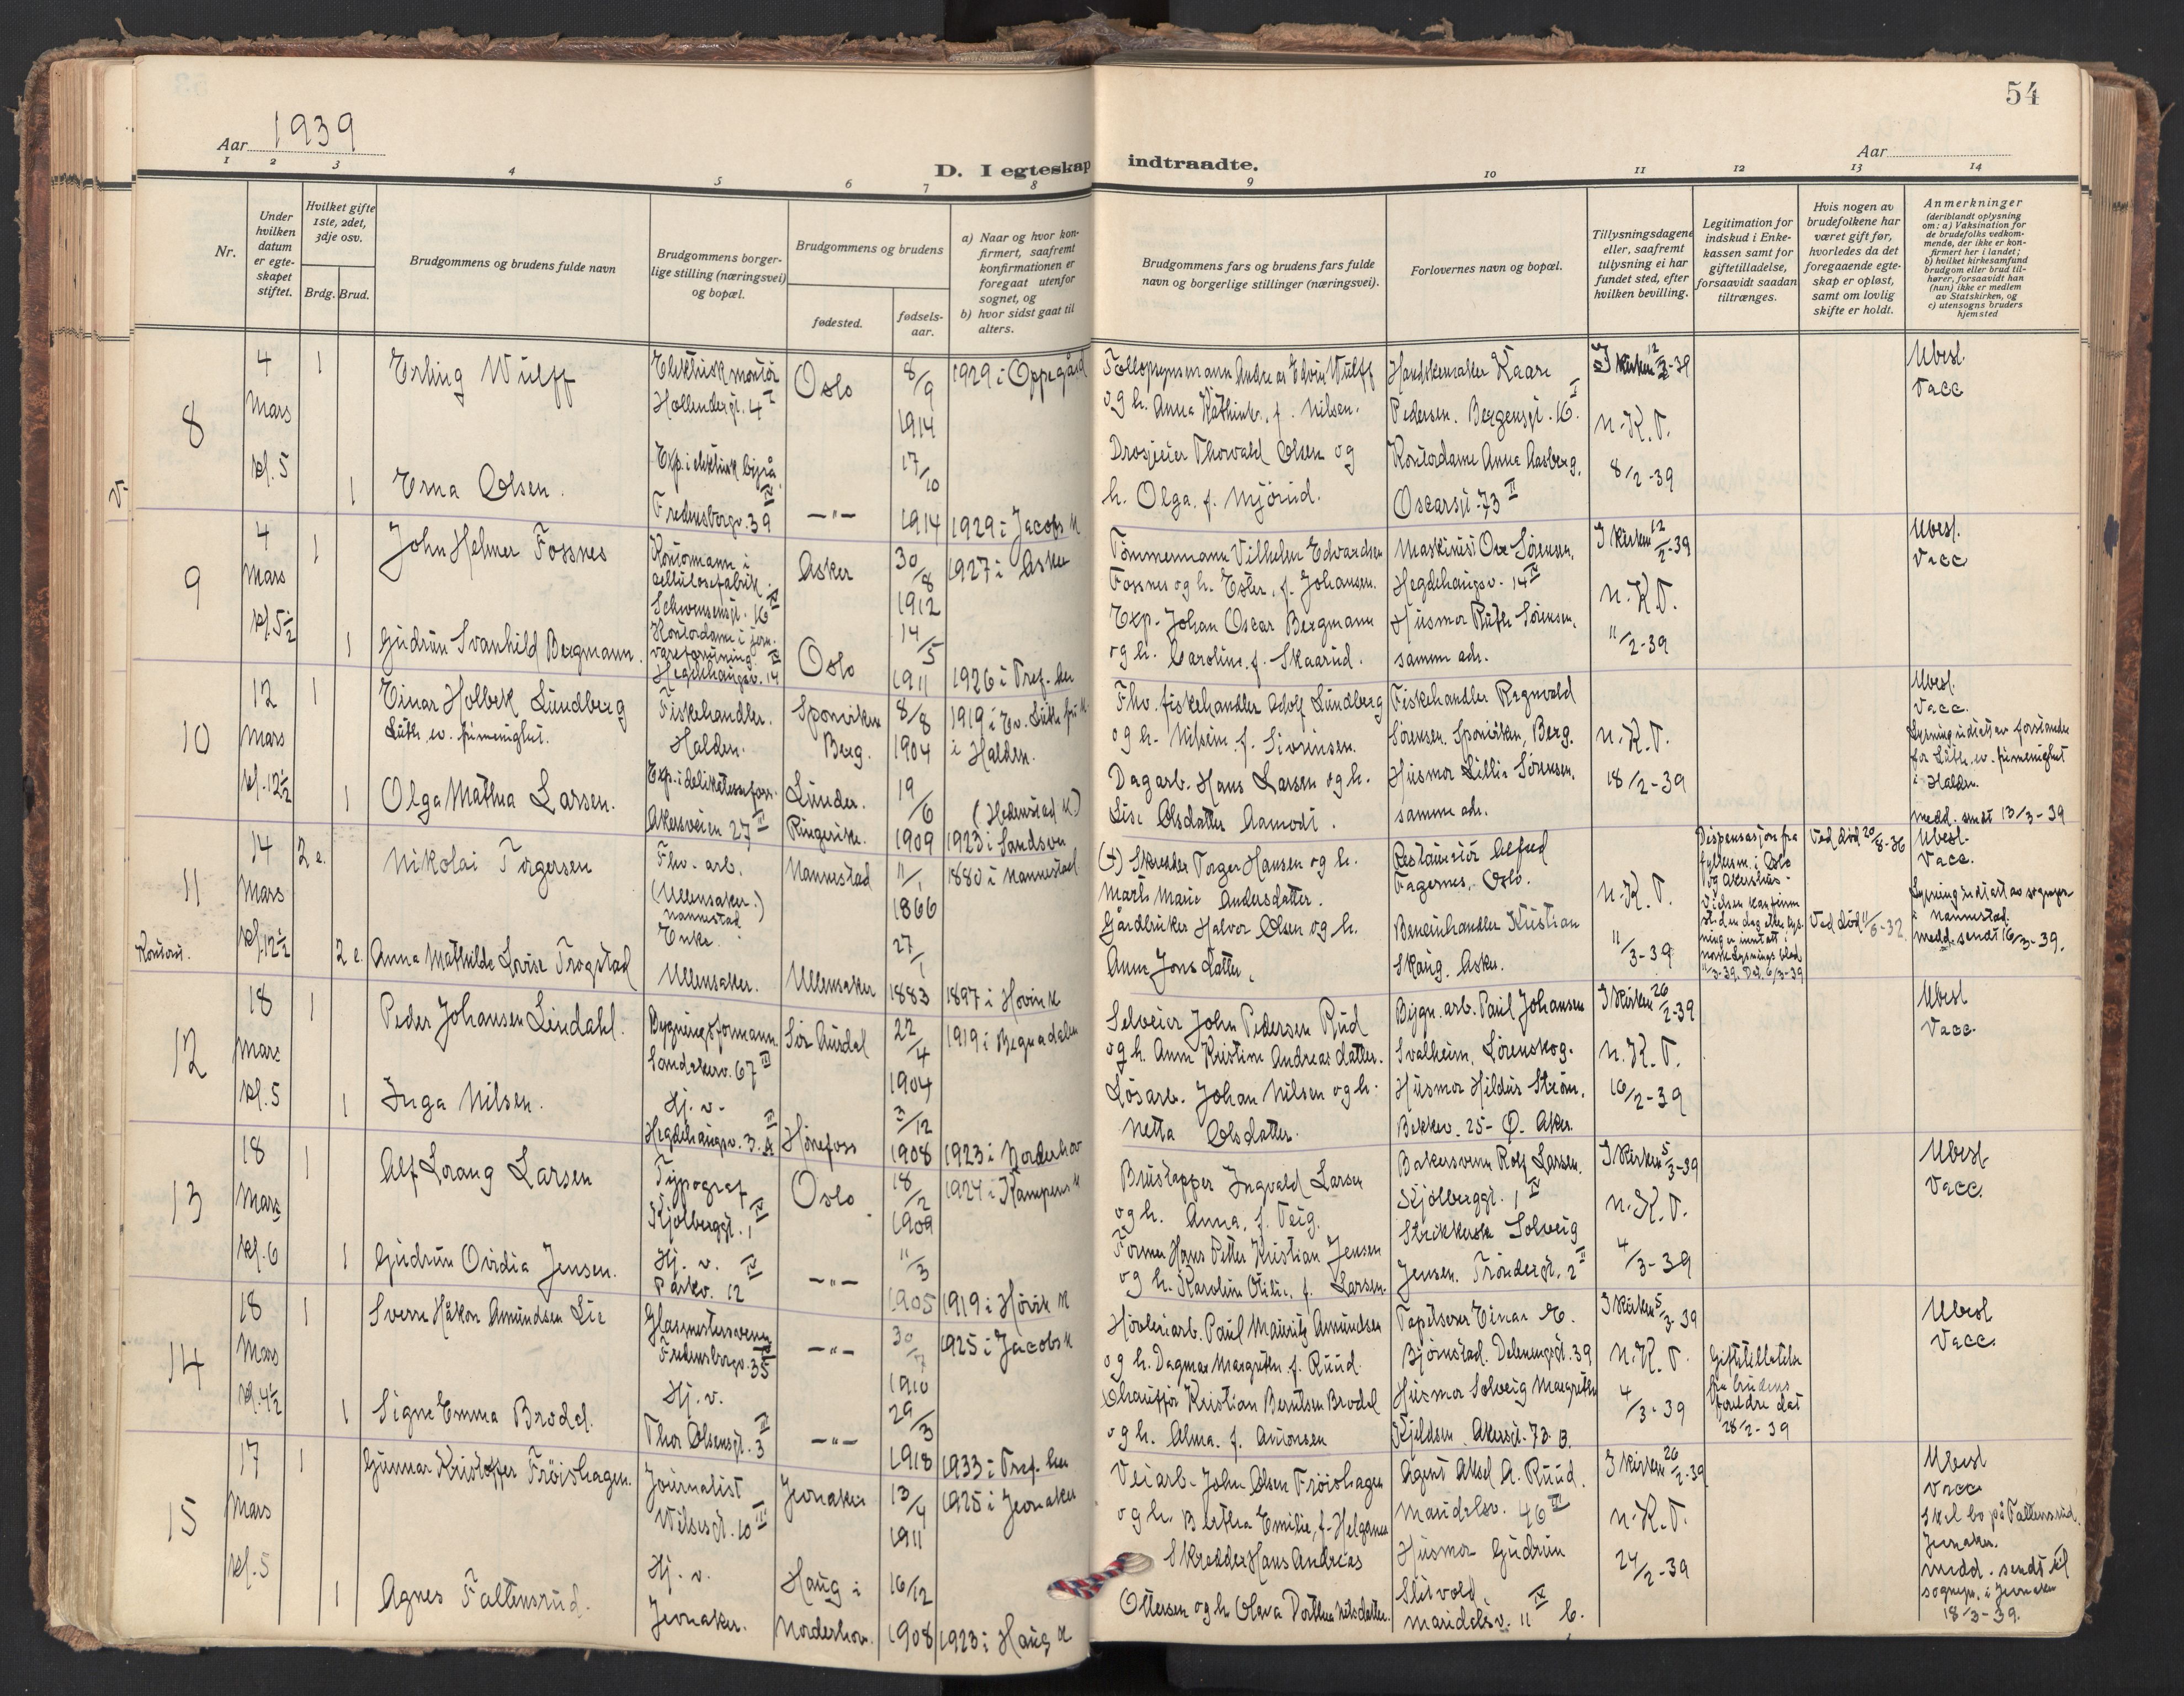 54
Aar 1939
Aar
D. I egteskap indtraadte.
1 2 3 4 5 6 7 8 9 10 11 12 13 14
Nr.
Under hvilken datum er egteskapet stiftet.
Hvilket gifte 1ste, 2det, 3dje osv.
Brdg. Brud.
Brudgommens og brudens fulde navn
Brudgommens borgerlige stilling (næringsvei) og bopæl.
Brudgommens og brudens
fødested.
fødselsaar.
a) Naar og hvor konfirmert, saafremt konfirmationen er foregaat utenfor sognet, og
b) hvor sidst gaat til alters.
Brudgommens fars og brudens fars fulde navn og borgerlige stillinger (næringsvei).
Forlovernes navn og bopæl.
Tillysningsdagene eller, saafremt tillysning ei har fundet sted, efter hvilken bevilling.
Legitimation for indskud i Enkekassen samt for giftetilladelse, forsaavidt saadan tiltrænges.
Hvis nogen av brudefolkene har været gift før, hvorledes da det foregaaende egteskap er opløst, samt om lovlig skifte er holdt.
Anmerkninger
(deriblandt oplysning om: a) Vaksination for de brudefolks vedkommende, der ikke er konfirmert her i landet; b) hvilket kirkesamfund brudgom eller brud tilhører, forsaavidt han (hun) ikke er medlem av Statskirken, og c) utensogns bruders hjemsted
8
4 Mars kl. 5
1
Erling Wulff
Elektrisk montør
Hollendergt. 4 I
Oslo
8/9 1914
1929 i Oppegård
Andreas Edvin Wulff
og h. Anna Kathinka, f. Nilsen.
Handskemaker Kaare
Pedersen. Bergensgt. 16 I
I kirken 12/2-39
N.K.T.
8/2-39
Ubesl.
Vacc
1
Erna Olsen.
Exp. i elektrisk byrå
Fredensborgv. 39 IV
-"-
17/10 1914
1929 i Jacobs K
Drosjeeier Thorvald Olsen og
h. Olga, f. Mjørud.
Kontordame Anna Aasberg,
Oscarsgt. 73 II
9
4 Mars kl. 5½
1
John Helmer Fossnes
Kontormann i
cellulosefabrik.
Schwensensgt. 16 IV
Asker
30/8 1912
1927 i Asker
Tømmermann Vilhelm Edvardsen
Fossnes og h. Ester, f. Johansen.
Maskinist Ove Sørensen,
Hegdehaugsv. 14 IV
I kirken 12/2-39
N.K.T.
11/2-39
Ubesl.
Vacc
1
Gudrun Svanhild Bergmann.
Kontordame i jern-
vareforretning.
Hegdehaugsv. 14 IV
Oslo
14/5 1911
1926 i Tref. her
Exp. Johan Oscar Bergmann
og h. Caroline, f. Skaarud.
Husmor Ruth Sørensen,
samme adr.
10
12 Mars kl. 12½
1
Einar Holbek Lundberg
Luth. ev. frimenighet.
Fiskehandler.
Halden.
Sponviken
Berg.
8/8 1904
1919 i Ev. Luth. fri K
i Halden.
Fhv. fiskehandler Adolf Lundberg
og h. Nilsine, f. Sivertsen.
Fiskehandler Ragnvald
Sørensen. Sponviken, Berg.
N.K.T.
18/2-39
Ubesl.
Vacc.
Lysning utstedt av forstander
for Luth. ev. frimenighet
i Halden.
medd. sendt 13/3-39
1
Olga Mathea Larsen.
Exp. i delikatesseforr.
Akersveien 27 III
Lunder.
Ringerike.
19/6 1909
(Hedenstad K)
1923 i Sandsvær
Dagarb. Hans Larsen og h.
Lise Olsdatter Aamodt.
Husmor Lillie Sørensen,
samme adr.
11
Kontoret.
14 Mars kl. 12½
2 e.
Nikolai Torgersen
Fhv. arb.
(Ullensaker.)
Nannestad
Nannestad
11/1 1866
1880 i Nannestad
(+) Skredder Torger Hansen og h.
Marte Marie Andersdatter.
Restauratør Alfred
Fagernes, Oslo.
N.K.T.
11/3-39
Dispensasjon fra
fylkesm. i Oslo
og Akershus
Vielsen kan finne
sted en dag etter lys-
ning er inntatt i
norsk Lysnings blad
11/3-39. Dat. 6/3-39
Ved død 20/8-36
Ved død 11/6-32
Ubesl.
Vacc.
Lysning utstedt av sogneprr.
i Nannestad.
medd. sendt 16/3-39.
2 e.
Anna Mathilde Lovise Trogstad
Enke.
Ullensaker.
Ullensaker
27/1 1883
1897 i Hovin K
Gårdbruker Halvor Olsen og h.
Anne Jonsdatter.
Bensinhandler Kristian
Skaug. Asker.
12
18 Mars kl. 5
1
Peder Johansen Lindahl.
Bygningsformann.
Sandakerv. 67 III
Sør Aurdal
22/4 1904
1919 i Begnadalen
Selveier John Pedersen Rud
og h. Anne Kristine Andreasdatter.
Bygn. arb. Paul Johansen
Svalheim, Lørenskog.
I kirken 26/2-39
N.K.T.
16/2-39
Ubesl
Vacc
1
Inga Nilsen.
Hj. v.
Hegdehaugsv. 3 A III
Hønefoss
3/12 1908
1923 i Norderhov
Løsarb. Johan Nilsen og h.
Netta Olsdatter.
Husmor Hildur Strøm,
Bekkev. 25- Ø. Aker
13
18 Mars kl. 6
1
Alf Lorang Larsen
Typograf
Kjølberggt. 1 IV
Oslo.
18/2 1909
1924 i Kampens K
Brustapper Ingvald Larsen
og h. Anna, f. Teig.
Bakersvenn Rolf Larsen.
Kjølberggt. 1 IV
I kirken 5/3-39
N.K.T.
4/3-39
Ubesl
Vacc.
1
Gudrun Ovidia Jensen.
Hj. v.
Parkv. 12 IV
-"-
11/3 1905
1919 i Høvik K
Former Hans Petter Kristian Jensen
og h. Karoline Otilie, f. Larsen.
Strikkerske Solveig
Jensen. Trøndergt. 2 II
14
18 Mars kl. 4½
1
Sverre Håkon Amundsen Lie
Glassmestersvenn
Fredensborgv. 35
-"-
30/7 1910
1925 i Jacobs K
Høvleriarb. Paul Mauritz Amundsen
og h. Dagmar Margrethe f. Ruud.
Tapetserer Einar E.
Bjørnstad. Delenenggt. 39
I kirken 5/3-39
N.K.T.
4/3-39
Giftetillatelse
fra brudens
foreldre dat
28/2-39
Ubesl
Vacc.
1
Signe Emma Brodal.
Hj. v.
Thor Olsensgt. 3 III
-"-
29/3 1918
1933 i Tref. her
Chauffør Kristian Berntsen Brodal
og h. Alma. f. Antonsen
Husmor Solveig Margrethe
Kjeldsen. Akersgt. 73 B.
15
17 Mars kl. 5
1
Gunnar Kristoffer Frøishagen.
Journalist
Wilsesgt. 10 III
Jevnaker
13/4 1911
1925 i Jevnaker
Veiarb. John Olsen Frøishagen
og h. Berthea Emilie, f. Helgerud
Agent Aksel A. Ruud.
Maridalsv. 46 II
I kirken 26/2-39
N.K.T.
24/2-39
Ubesl
Vacc
Skal bo på Fallensrud.
Jevnaker.
medd. sendt til
sognepr. i Jevnaker
18/3-39.
1
Agnes Fallensrud.
Hj. v.
Jevnaker.
Haug i
Norderhov.
16/12 1908
1923 i Haug K
Skredder Hans Andreas
Ottersen og h. Olava Dorthea Nilsdatter.
Husmor Gudrun
Slitvold
Maridalsv. 11 IV b.